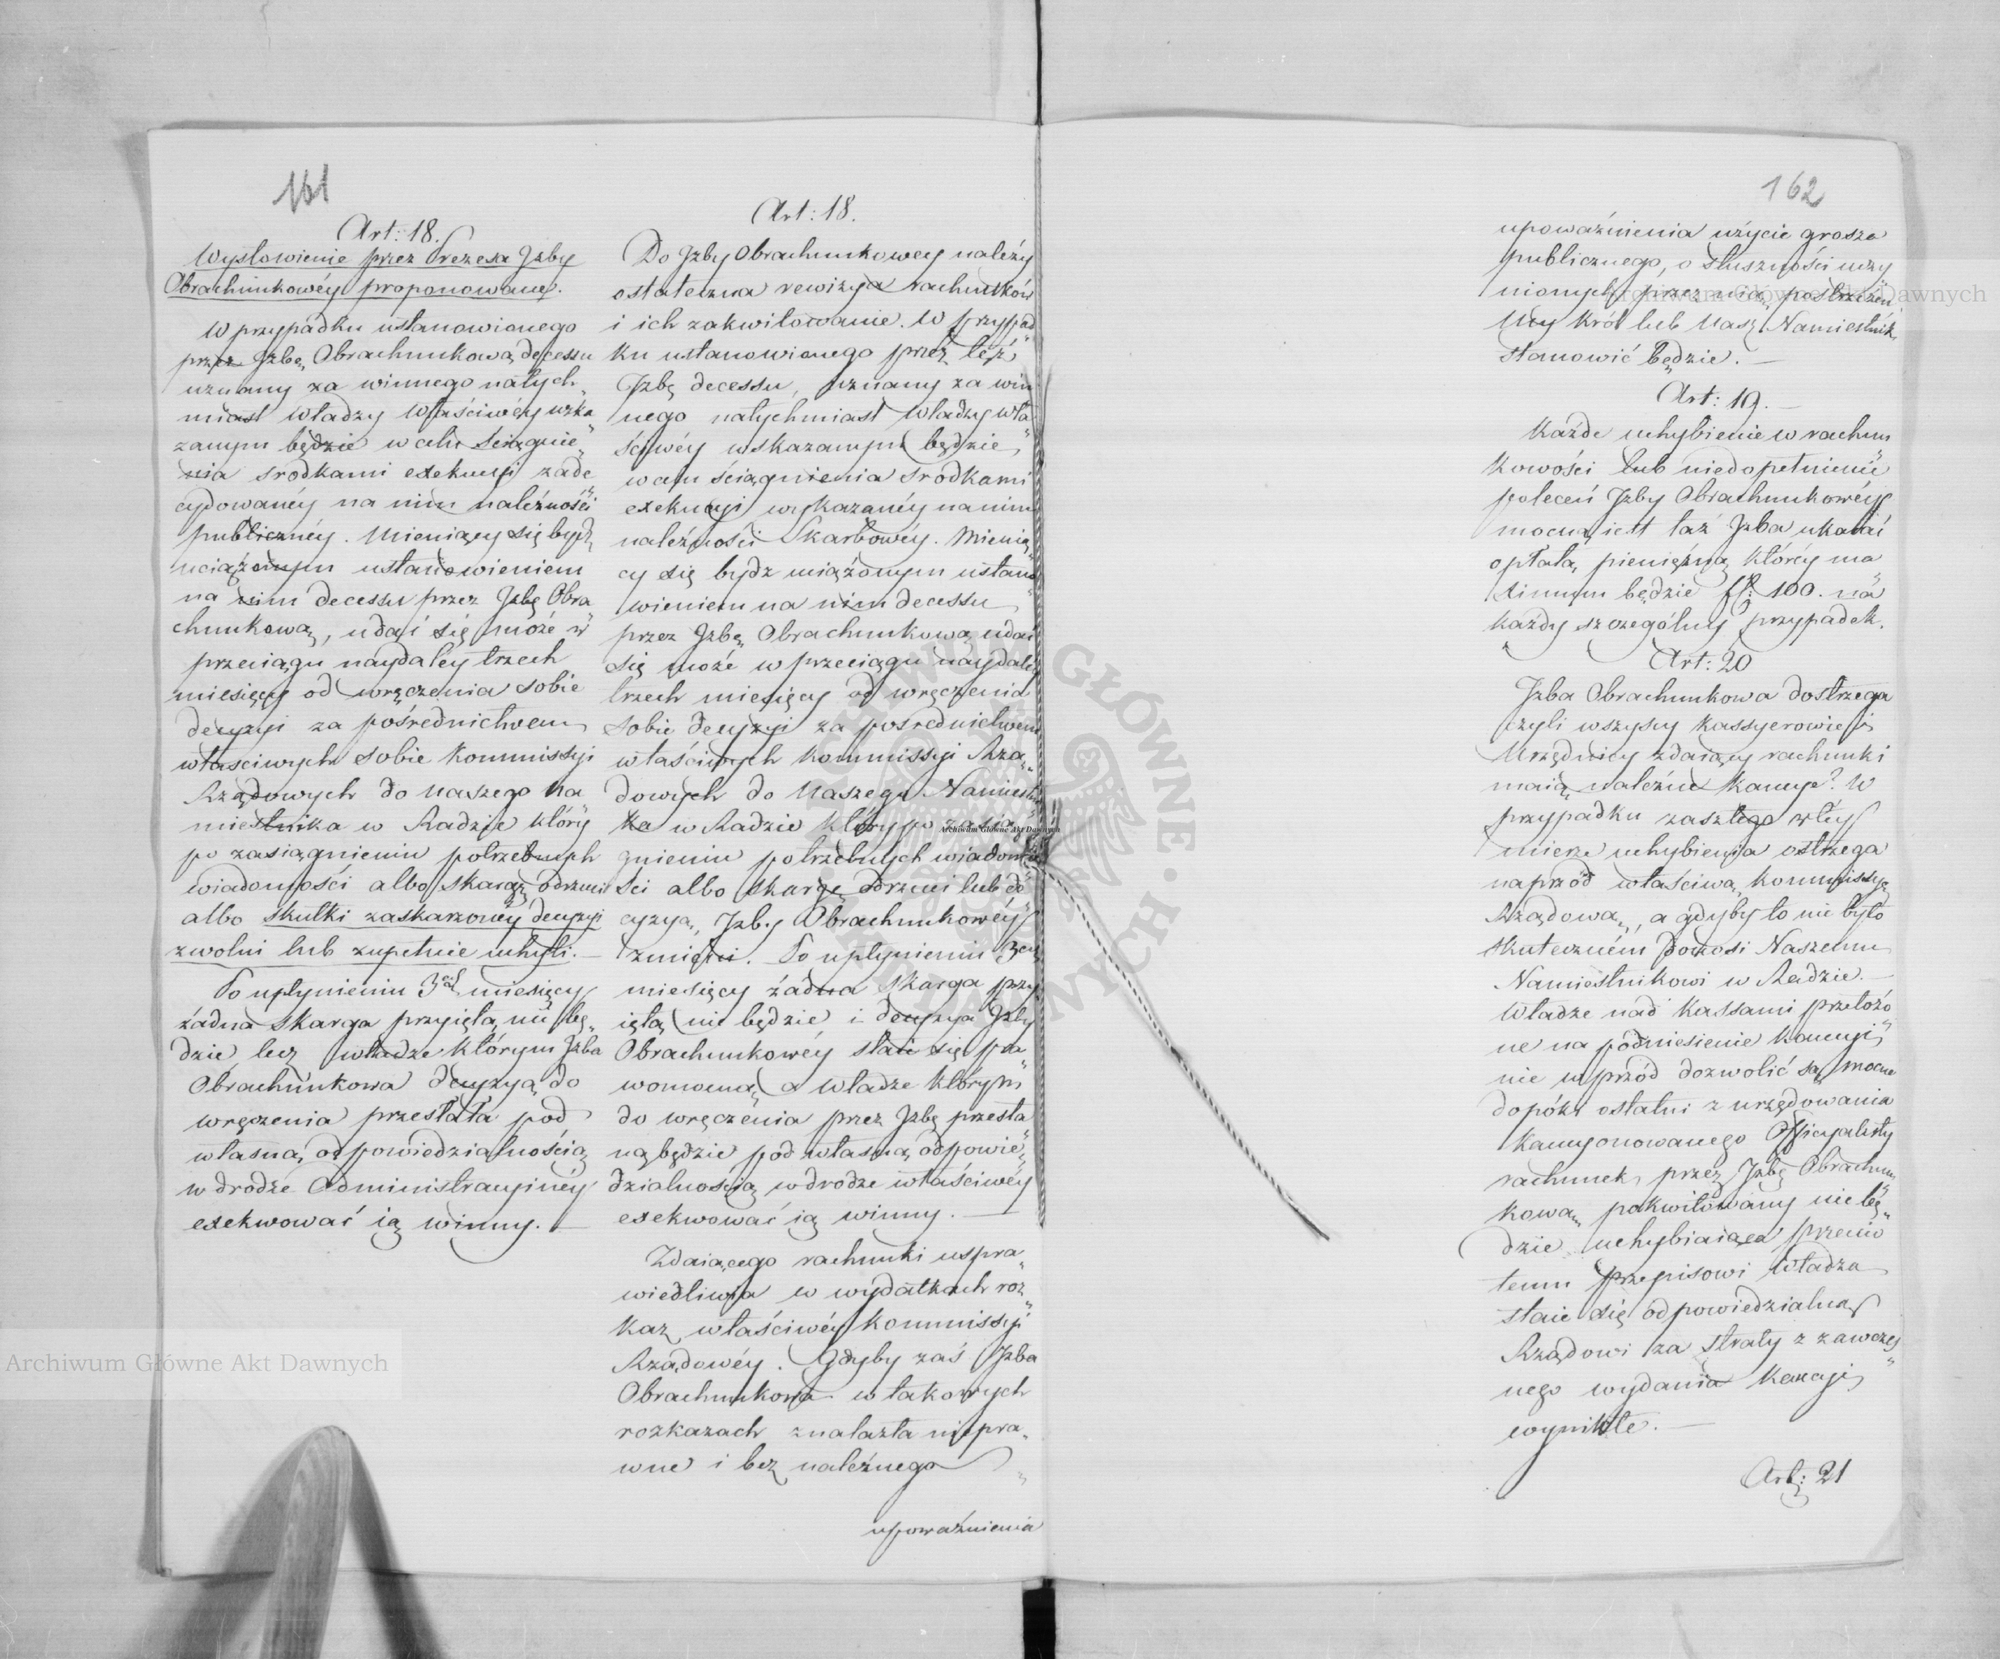 161
Art: 18.
Wysłowienie przez Prezesa Izby
Obrachunkowéy proponowane.
W przypadku ustanowionego
przez Izbę Obrachunkową decessu
uznany za winnego natych„
miast władzy właściwéy wska
zanym będzie w celu ściągnie„
nia srodkami exekucyi zade
cydowanéy na nim należności
publicznéy. Mieniący się bydź
uciążonym ustanowieniem
na nim decessu przez Izbę Obra„
chunkową, udać się może w
przeciągu naydaléy trzech
miesięcy od wręczenia sobie
decyzyi za pośrednictwem
właściwych sobie Kommissyi
Rządowych do Naszego Na
miestnika w Radzie który
po zasiągnieniu potrzebnych
wiadomości albo skargę odrzuci
albo skutki zaskarżonéy decyzyi
zwolni lub zupełnie uchyli. —
Po upłynieniu 3ch miesięcy
żadna skarga przyięta nie bę„
dzie lecz władze którym Izba
Obrachunkowa decyzyą do
wręczenia przesłała pod
własną odpowiedzialnością
w drodze Administracyinéy
exekwować ią winny. —
Art: 18.
Do Izby Obrachunkowey należy
ostateczna rewizya rachunków
i ich zakwitowanie. W przypad„
ku ustanowionego przez też
Izbę decessu, uznany za win
nego natychmiast władzy wła„
ściwéy wskazanym będzie,
w celu ściągnienia srodkami
exekucyi wykazanéy na nim
należności Skarbowéy. Mienią„
cy się bydz uciążonym ustano
wieniem na nim decessu
przez Izbę Obrachunkową udać
się może w przeciągu naydaléy
trzech miesięcy od wręczenia
sobie decyzyi za pośrednictwem
właściwych Kommissyi Rzą„
dowych do Naszego Namiestni
ka w Radzie który po zasią„
gnieniu potrzebnych wiadomo
ści albo skargę odrzuci lub de
cyzyą Izby Obrachunkowéy
zmieni. Po upłynieniu 3ech
miesięcy żadna skarga przy
iętą nie będzie i decyzya Izby
Obrachunkowéy staie się pra„
womocną a władze którym
do wręczenia przez Izbę przesła„
ną będzie pod własną odpowie„
dzialnością w drodze właściwéy
exekwować ią winny. —
Zdaiącego rachunki uspra„
wiedliwia w wydatkach roz„
kaz właściwéy Kommissyi
Rządowéy. Gdyby zaś Izba
Obrachunkowa w takowych
rozkazach znalazła niepra„
wne i bez należnego
upoważnienia
162
upoważnienia użycie grosza
publicznego, o słuszności uczy
nionych przez nią postrzeżeń
My Król lub Nasz Namiestnik
stanowić będzie. —
Art: 19. —
Każde uchybienie w rachun
kowości lub niedopełnienie
poleceń Izby Obrachunkowéy
mocną iest taż Izba ukarać
opłatą pieniężną któréy ma
ximum będzie fl: 100. na
każdy szczególny przypadek.
Art: 20
Izba Obrachunkowa dostrzega
czyli wszyscy Kassyerowie i
Urzędnicy zdaiący rachunki
maią należne kaucye? W
przypadku zaszłego w téy
mierze uchybienia ostrzega
naprzód właściwą Kommissyę
Rządową, a gdyby to nie było
skuteczném donosi Naszemu
Namiestnikowi w Radzie. —
Władze nad Kassami przełożo
ne na podniesienie kaucyi„
nie wprzód dozwolić są mocne
dopóki ostatni z urzędowania
kaucyonowanego Officyalisty
rachunek przez Izbę Obrachun„
kową pokwitowany nie bę„
dzie, uchybiaiąca przeciw
temu przepisowi władza
staie się odpowiedzialną
Rządowi za straty z zawczes„
nego wydania kaucyi
wynikłe. —
Art: 21
Archiwum Główne Akt Dawnych
Archiwum Główne Akt Dawnych
Archiwum Główne Akt Dawnych